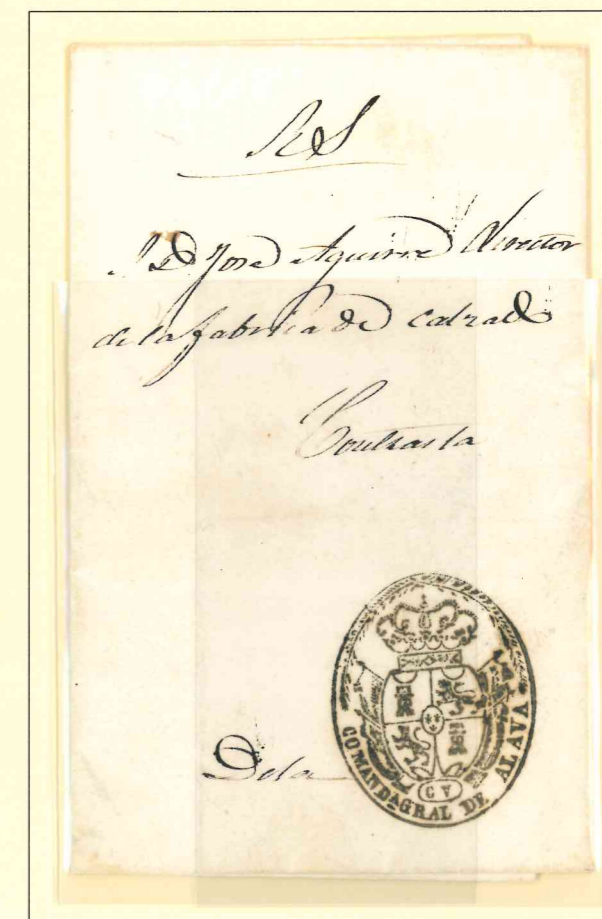 RS
S. D. Jose Aguirre Director
de la fabrica de calzado
Contrasta
De la
COMANDA GRAL DE ALAVA
C V